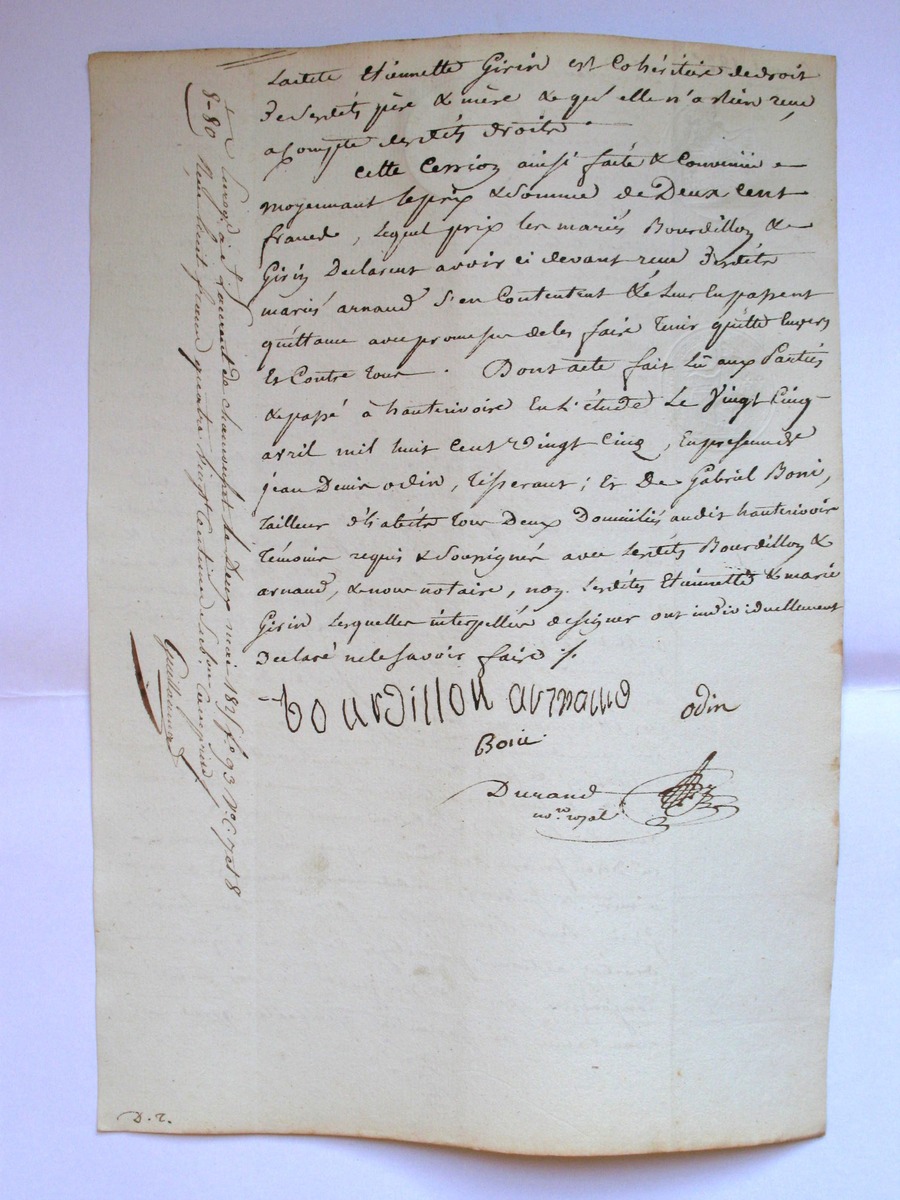 Ladite Etiennette Girin est Cohéritière de droit
de Sesdits père & mère & qu'elle n'a Rien reçu
acompte desdits droits.
Cette Cession ainsi faite & Convenüe
moyennant le prix & Somme de Deux Cent
francs, lequel prix les mariés Bourdillon &
Girin Declarent avoir ci devant reçu desdits
mariés arnaud S'en Contentent & leur en passent
quittance avec promesse de les faire tenir quitte Envers
Et Contre tous. Dont acte fait Lû aux Parties
& passé à hauterivoire En l'étude Le Vingt Cinq
avril mil huit Cent Vingt Cinq, En presence de
jean Denis odin, Tisserant; Et De Gabriel Boni,
Tailleur d'habits tous Deux Domiciliés audit hauterivoire
Témoins requis & Soussignés avec Lesdits Bourdillon &
arnaud, & nous notaire, non Lesdites Etiennette & marie
Girin Lesquelles interpellées de signer ont individuellement
Declaré ne le savoir faire
bourdillon arnaud odin
Boni
Durand
nre royal
Enregé à St Laurent de chamousset le Deux mai 1825 fo 93 Vo C. 7 et 8
8-80 Reçu huit francs quatre vingt Centimes Subon Compris
Guillaume
D. r.